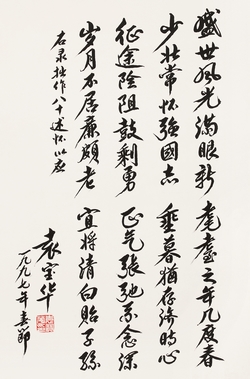 盛世风光满眼新 耄耋之年几度春
少壮常怀強國志 垂暮犹存济时心
征途险阻鼓剩勇 正气张弛系念深
岁月不居廉颇老 宜将清白贻子孙
右录拙作八十述怀以应
袁宝华
一九九七年春節